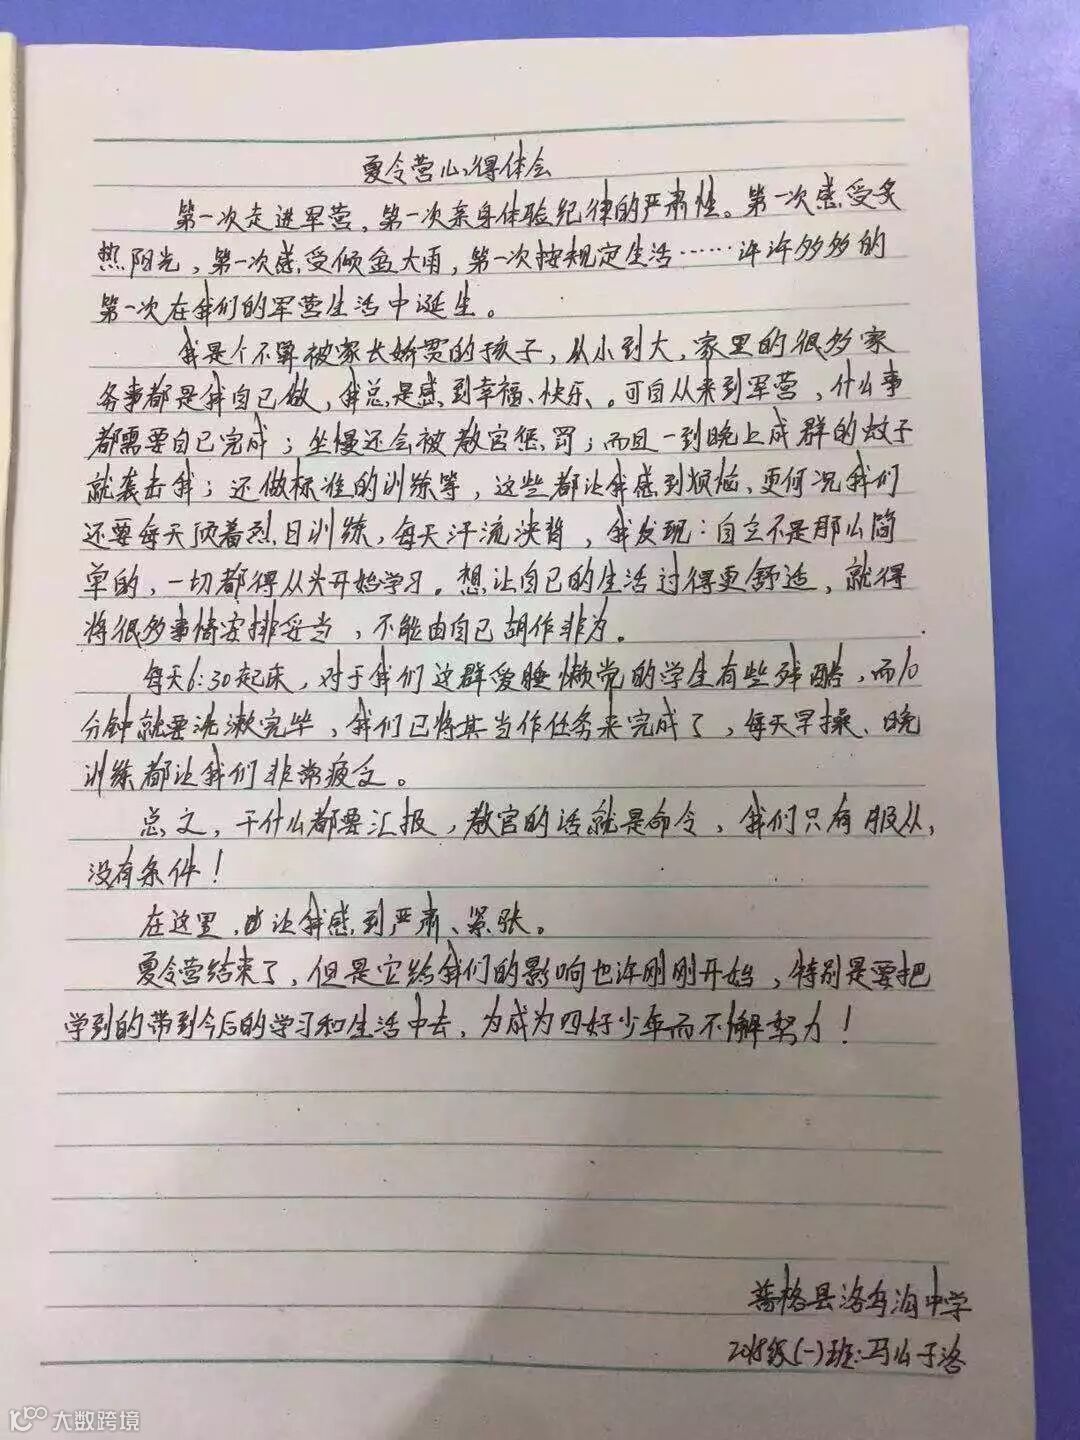 夏令营心得体会
第一次走进军营，第一次亲身体验纪律的严肃性。第一次感受炙
热阳光，第一次感受倾盆大雨，第一次按规定生活……许许多多的
第一次在我们的军营生活中诞生。
我是个不算被家长娇贯的孩子，从小到大，家里的很多家
务事都是我自己做，我总是感到幸福、快乐、。可自从来到军营，什么事
都需要自己完成；坐慢还会被教官惩罚；而且一到晚上成群的蚊子
就袭击我；还做标准的训练等，这些都让我感到烦恼、更何况我们
还要每天顶着烈日训练，每天汗流浃背，我发现：自立不是那么简
单的，一切都得从头开始学习。想让自己的生活过得更舒适，就得
将很多事情安排妥当，不能由自己胡作非为。
每天6:30起床，对于我们这群爱睡懒觉的学生有些残酷，而10
分钟就要洗漱完毕，我们已将其当作任务来完成了，每天早操、晚
训练都让我们非常疲乏。
总之，干什么都要汇报，教官的话就是命令，我们只有服从，
没有条件！
在这里，让我感到严肃、紧张。
夏令营结束了，但是它给我们的影响也许刚刚开始，特别是要把
学到的带到今后的学习和生活中去，为成为四好少年而不懈努力！
普格县洛乌沟中学
级(一)班：马么子洛
大数跨境